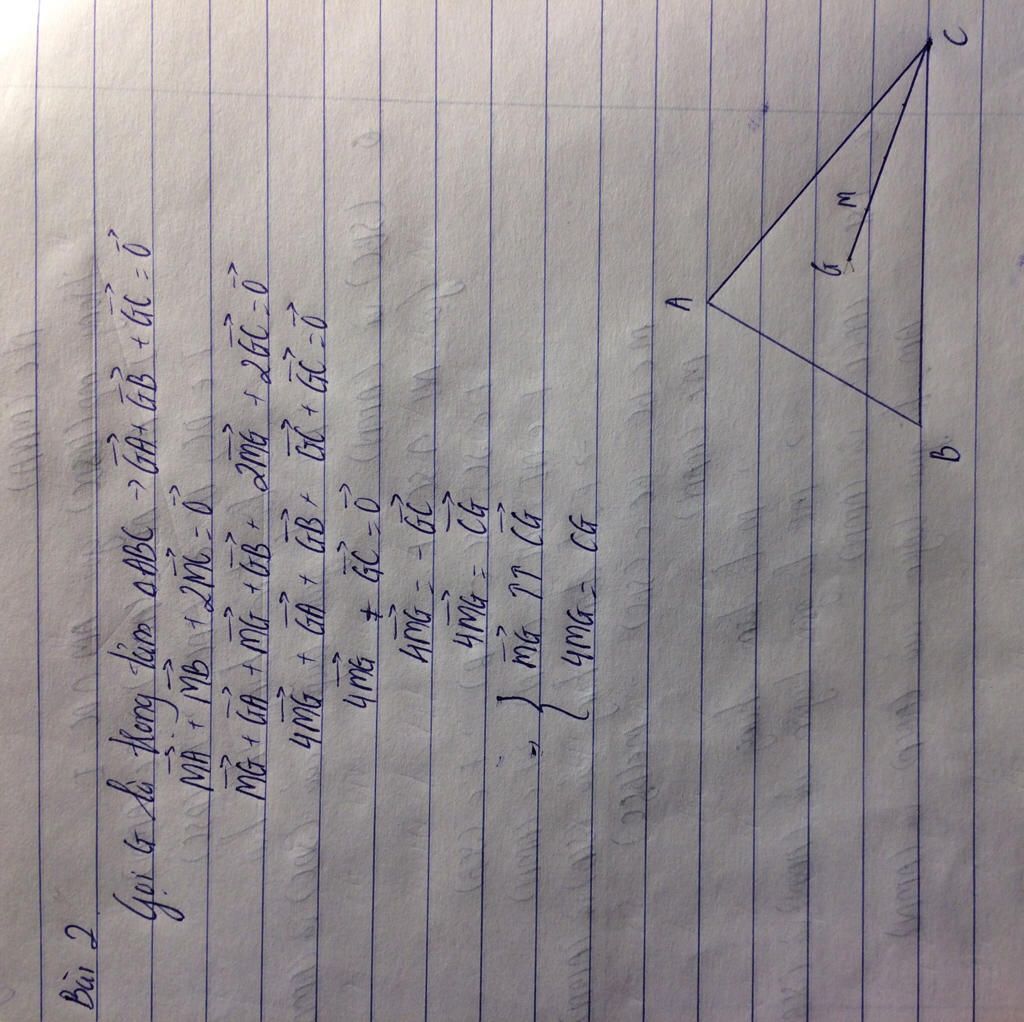 Bài 2
Gọi G là trọng tâm ΔABC → GA⃗ + GB⃗ + GC⃗ = 0⃗
MA⃗ + MB⃗ + 2MC⃗ = 0⃗
MG⃗ + GA⃗ + MG⃗ + GB⃗ + 2MG⃗ + 2GC⃗ = 0⃗
4MG⃗ + GA⃗ + GB⃗ + GC⃗ + GC⃗ = 0⃗
4MG⃗ + GC⃗ = 0⃗
4MG⃗ = - GC⃗
4MG⃗ = CG⃗
= { MG⃗ ↑↑ CG⃗
4MG = CG
A
G
M
B
C